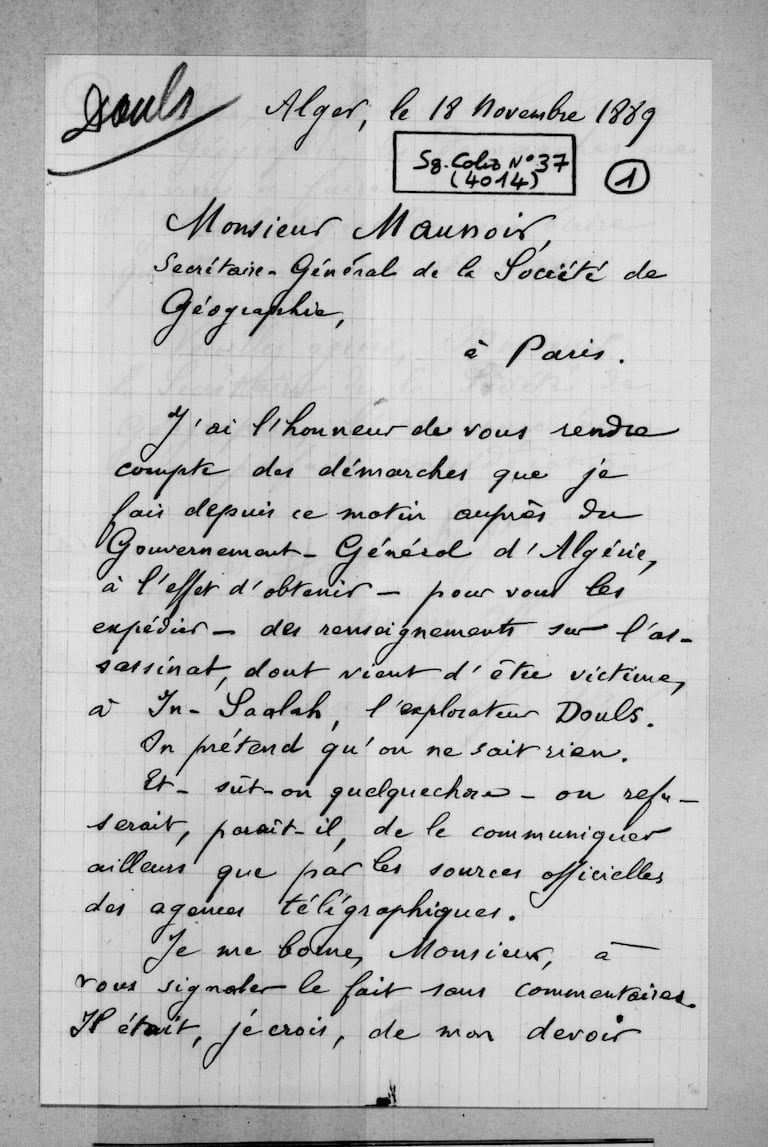 Douls
Alger, le 18 Novembre 1889
Sg. Colis N° 37
(4014)
1
Monsieur Maunoir,
Secrétaire-Général de la Société de
Géographie,
à Paris.
J'ai l'honneur de vous rendre
compte des démarches que je
fais depuis ce matin auprès du
Gouvernement-Général d'Algérie,
à l'effet d'obtenir — pour vous les
expédier — des renseignements sur l'as-
sassinat, dont vient d'être victime,
à In-Saalah, l'explorateur Douls.
On prétend qu'on ne sait rien.
Et — sût-on quelquechose — on refu-
serait, paraît-il, de le communiquer
ailleurs que par les sources officielles
des agences télégraphiques.
Je me borne, Monsieur, à
vous signaler le fait sans commentaires.
Il était, je crois, de mon devoir